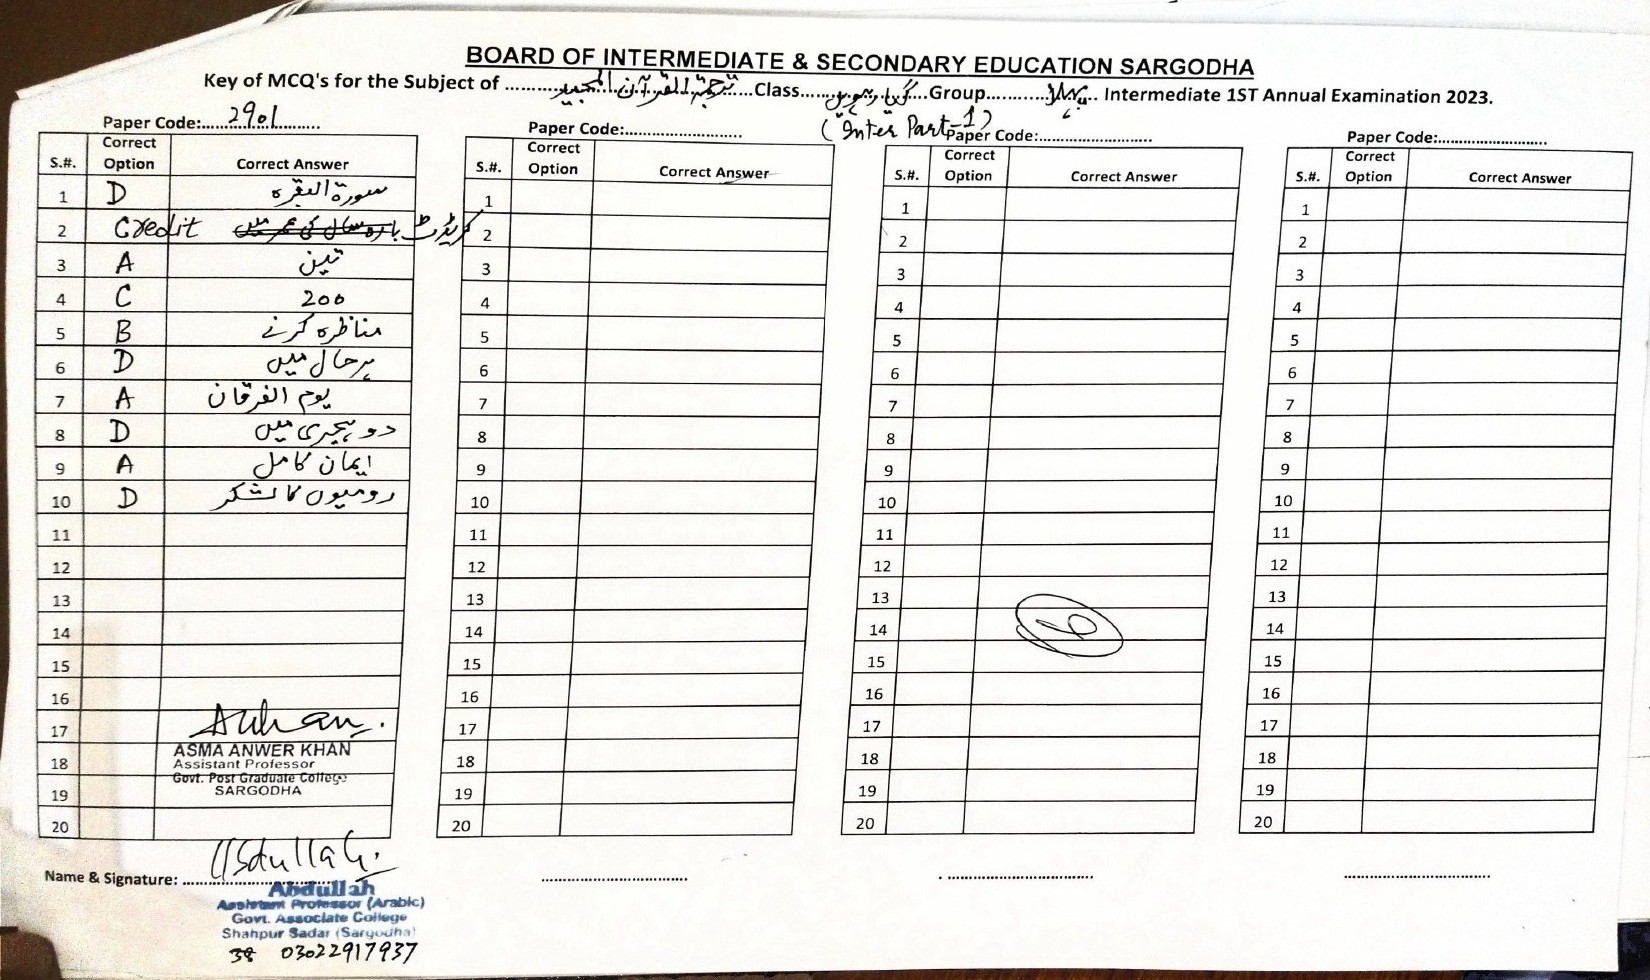 BOARD OF INTERMEDIATE & SECONDARY EDUCATION SARGODHA
Key of MCQ's for the Subject of ترجمۃ القرآن المجید Class گیارہویں Group پہلا Intermediate 1ST Annual Examination 2023.
(Inter Part-1)
Paper Code: 2901
S.#. Correct Option Correct Answer
1 D سورۃ البقرہ
2 Credit بارہ سال کی عمر میں کریڈٹ
3 A تین
4 C 200
5 B مناظرہ کرنے
6 D ہر حال میں
7 A یوم الفرقان
8 D دو ہجری میں
9 A ایمان کامل
10 D رومیوں کا لشکر
11
12
13
14
15
16
17
18
19
20
ASMA ANWER KHAN
Assistant Professor
Govt. Post Graduate College
SARGODHA
Paper Code:
S.#. Correct Option Correct Answer
1
2
3
4
5
6
7
8
9
10
11
12
13
14
15
16
17
18
19
20
Paper Code:
S.#. Correct Option Correct Answer
1
2
3
4
5
6
7
8
9
10
11
12
13
14
15
16
17
18
19
20
Paper Code:
S.#. Correct Option Correct Answer
1
2
3
4
5
6
7
8
9
10
11
12
13
14
15
16
17
18
19
20
Name & Signature: Abdullah
Abdullah
Assistant Professor (Arabic)
Govt. Associate College
Shahpur Sadar (Sargodha)
03022917937